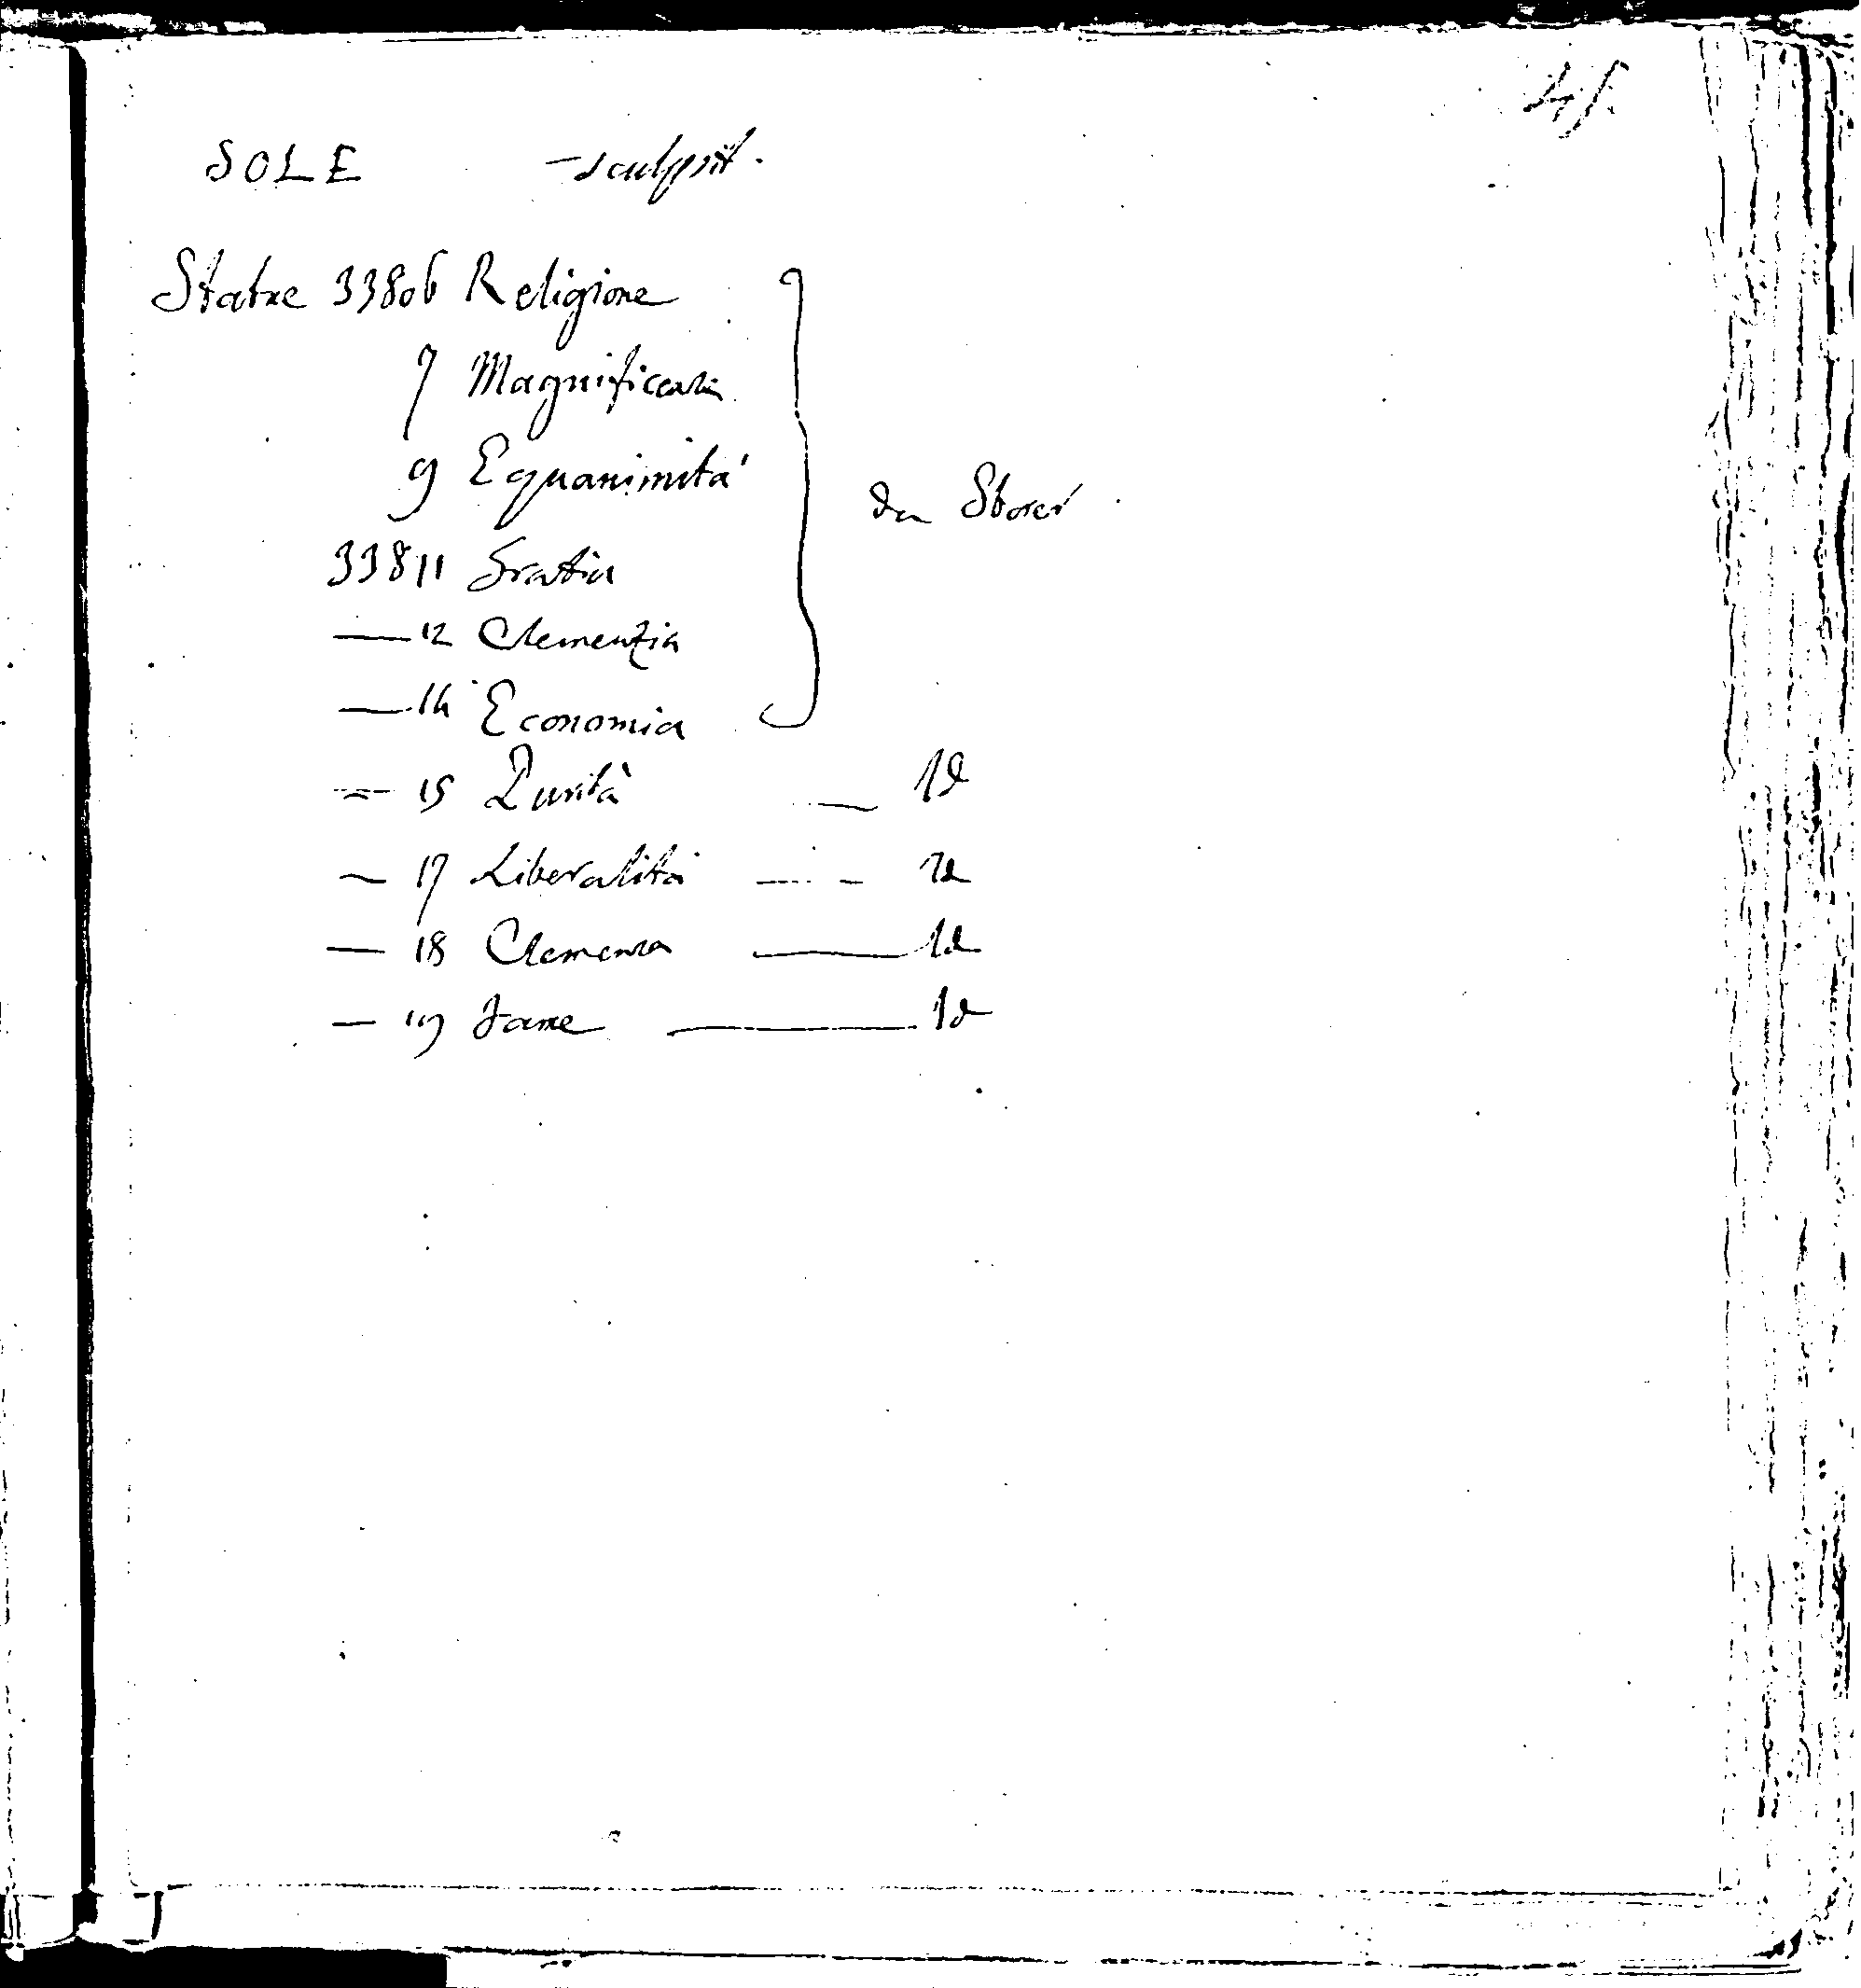 41.
SOLE — sculpsit.
Statue 33806 Religione
7 Magnificenza
9 Equanimitá
da Storer
33811 Gratia
— 12 Clementia
— 14 Economia
— 15 Puritá — 1d
— 17 Liberalitá — — 1d
— 18 Clemenza — 1d
— 19 Fame — 1d